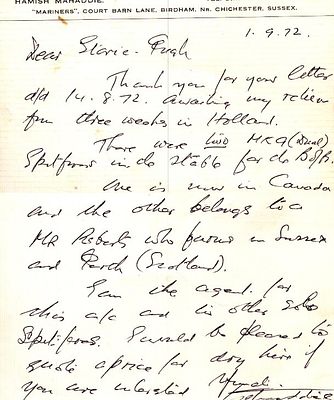 HAMISH MAHADDIE.
"MARINERS", COURT BARN LANE, BIRDHAM, NR. CHICHESTER, SUSSEX.
1.9.72.
Dear Storie-Pugh
Thank you for your letter
d/d 14.8.72. awaiting my return
from three weeks in Holland.
There were two MK9 (Dual)
Spitfires in the stable for the BofB.
One is now in Canada
and the other belongs to a
MR Roberts who farms in Sussex
and Perth (Scotland).
I am the agent for
this a/c and his other solo
Spitfires. I would be pleased to
quote a price for dry hire if
you are interested